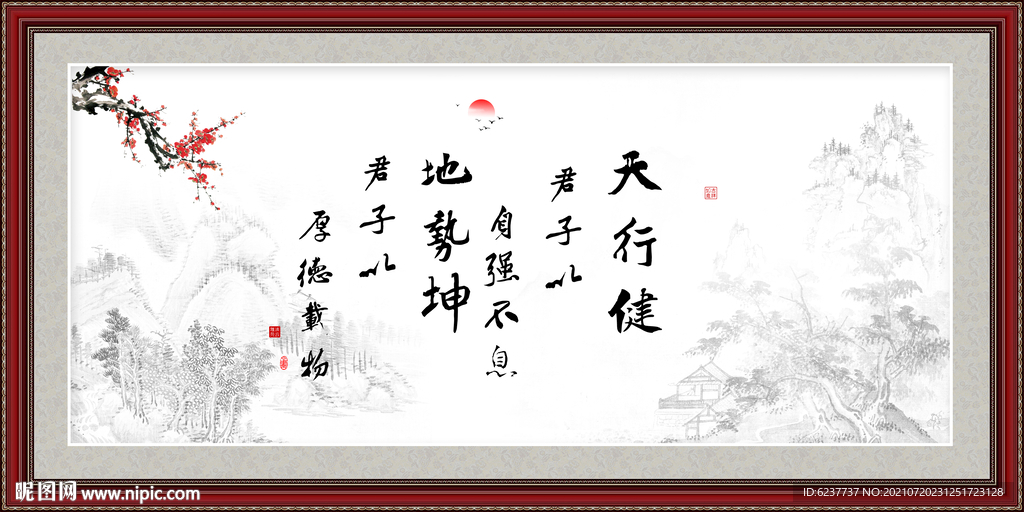 天行健
君子以
自强不息
地勢坤
君子以
厚德載物
昵图网 www.nipic.com
ID:6237737 NO:20210720231251723128